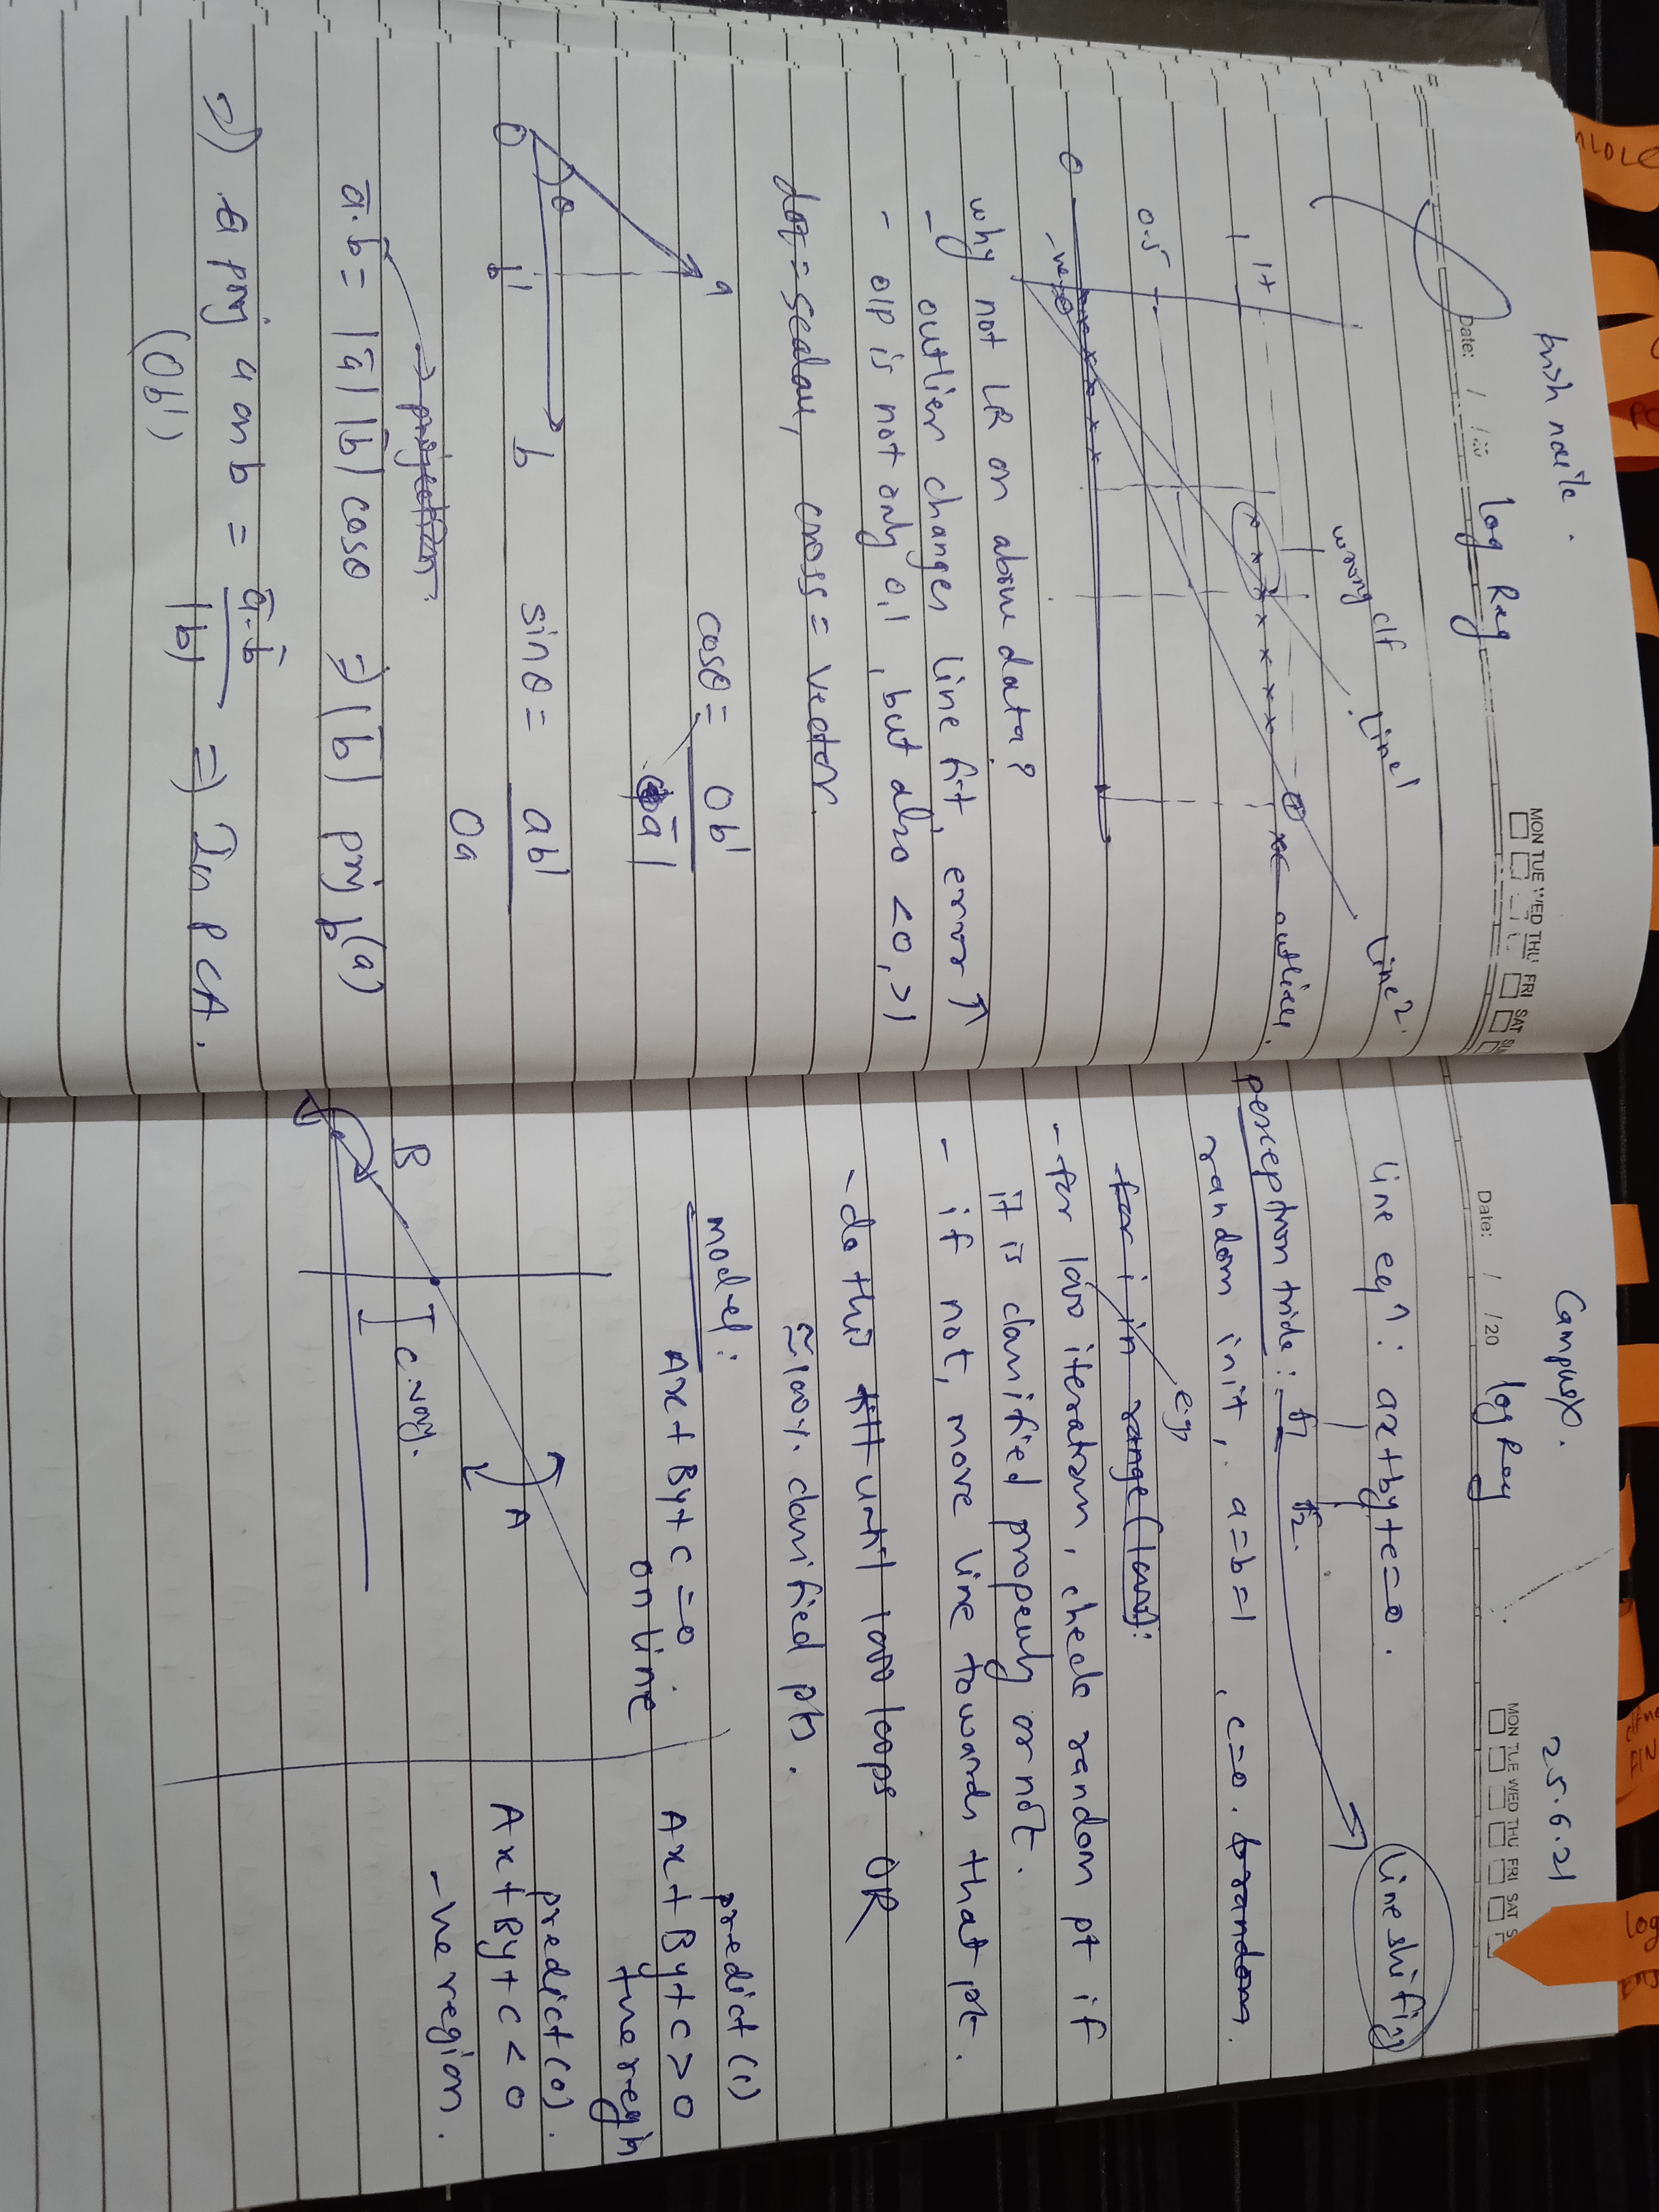 krish naik.
Date: / /20
log Reg
MON TUE WED THU FRI SAT
wrong clf
Line 1
Line 2.
1+
1
outlier.
0.5
0
-ve
why not LR on above data?
- outlier changes line fit, error ↑
- o/p is not only 0,1, but also <0, >1
dot = scalar, cross = vector.
a
O
θ
b'
b
cosθ = Ob' / |ā|
sinθ = ab' / Oa
→ projection.
ā·b̄ = |ā| |b̄| cosθ ⇒ |b̄| proj b(a)
⇒ proj a on b = ā·b̄ / |b| ⇒ In PCA.
(Ob')
Campusx.
25.6.21
Date: / /20
log Reg
MON TUE WED THU FRI SAT S
line eqn: ax+by+c=0.
line shifting
perceptron trick: f1 f2.
random init, a=b=1, c=0. random.
for i in range(1000):
eg,
- for 1000 iteration, check random pt if
it is classified properly or not.
- if not, move line towards that pt.
- do this till until 1000 loops OR
≈100% classified pts.
model:
Ax+By+c=0.
on line
predict(1)
Ax+By+c>0
+ve regn
predict(0).
Ax+By+c<0
-ve region.
B
A
c
log